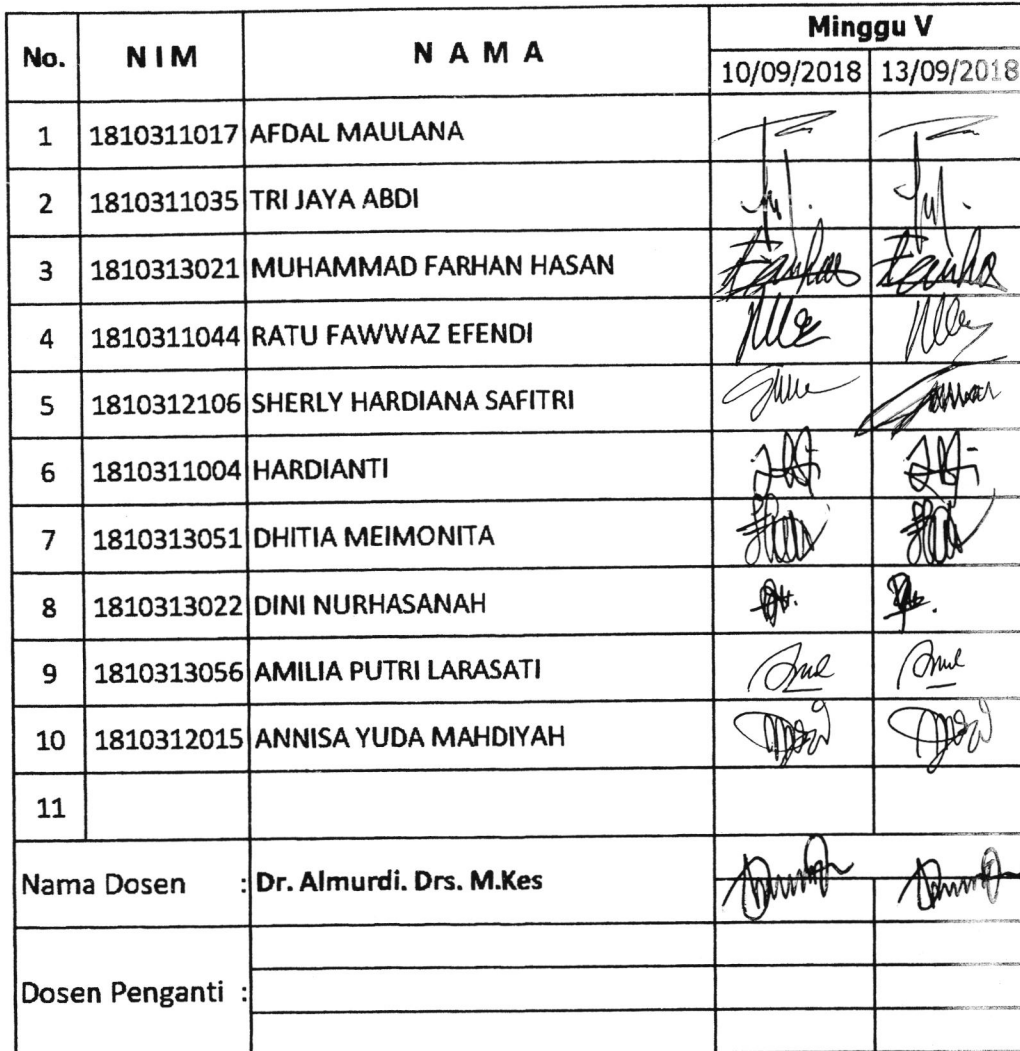 No. N I M N A M A Minggu V
10/09/2018 13/09/2018
1 1810311017 AFDAL MAULANA
2 1810311035 TRI JAYA ABDI
3 1810313021 MUHAMMAD FARHAN HASAN
4 1810311044 RATU FAWWAZ EFENDI
5 1810312106 SHERLY HARDIANA SAFITRI
6 1810311004 HARDIANTI
7 1810313051 DHITIA MEIMONITA
8 1810313022 DINI NURHASANAH
9 1810313056 AMILIA PUTRI LARASATI
10 1810312015 ANNISA YUDA MAHDIYAH
11
Nama Dosen : Dr. Almurdi. Drs. M.Kes
Dosen Penganti :